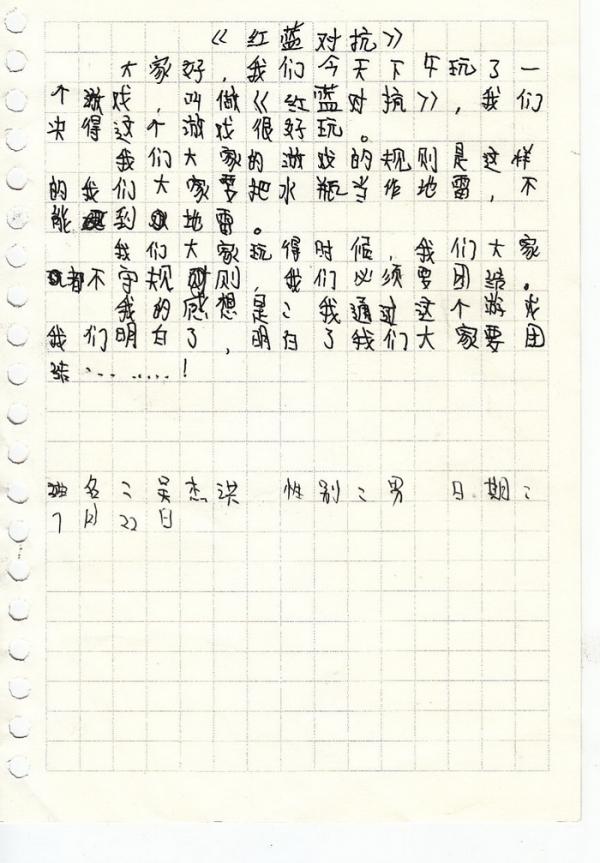 《红蓝对抗》
大家好，我们今天下午玩了一
个游戏，叫做《红蓝对抗》，我们
决得这个游戏很好玩。
我们大家的游戏的规则是这样
的我们大家要把水瓶当作地雷，不
能到地雷。
我们大家玩得时候，我们大家
都不守规则，我们必须要团结。
我的感想是：我通过这个游戏
我们明白了，明白了我们大家要团
结………！
名：吴杰洪 性别：男 日期：
7月22日